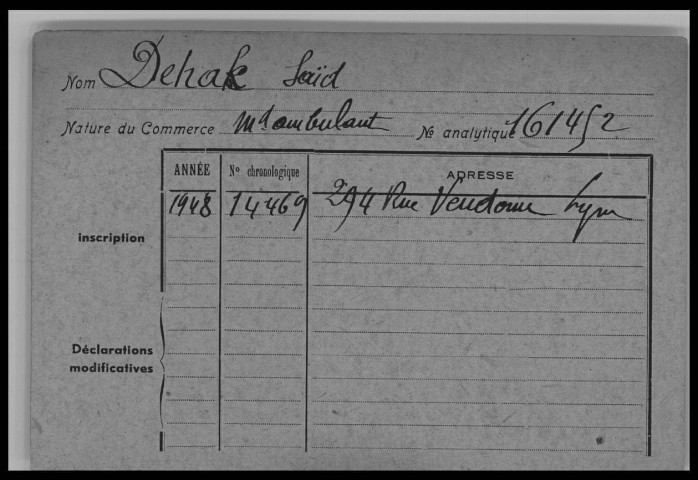 Nom Dehak Saïd
Nature du Commerce Md ambulant No analytique 161452
ANNÉE No chronologique ADRESSE
1948 14469 294 Rue Vendome Lyon
inscription
Déclarations
modificatives